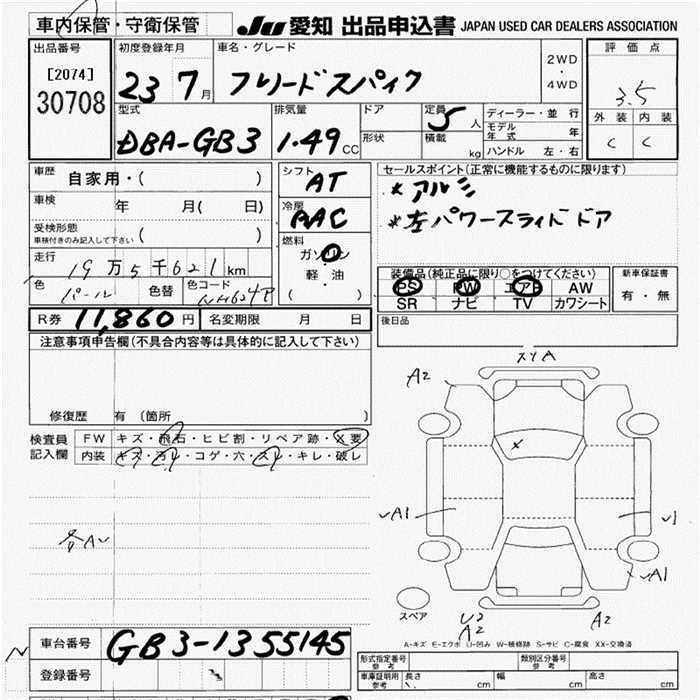 車内保管・守衛保管
JU 愛知 出品申込書 JAPAN USED CAR DEALERS ASSOCIATION
出品番号 初度登録年月 車名・グレード 2WD ・ 4WD 評価点
[2074]
30708 23 7月 フリードスパイク 3.5
型式 排気量 ドア 定員 ディーラー・並行 外装 内装
DBA-GB3 1.49 CC 形状 5人 積載 kg モデル年式 年 C C
ハンドル 左・右
車歴 自家用・( ) シフト AT セールスポイント(正常に機能するものに限ります)
車検 年 月( 日) 冷房 AAC *アルミ
受検形態 車検付きのみ記入して下さい ( ) *左パワースライドドア
走行 19万5千621km 燃料 ガソリン
軽・油
( ・ )
色 パール 色替 色コード NH624P
装備品(純正品に限り○をつけてください) 新車保証書
PS PW エアB AW 有・無
SR ナビ TV カワシート
R券 11,860円 名変期限 月 日 後日品
注意事項申告欄(不具合内容等は具体的に記入して下さい)
修復歴 有 (箇所 )
検査員記入欄 FW キズ・飛石・ヒビ割・リペア跡・X要
内装 キズ・汚レ・コゲ・穴・スレ・キレ・破レ
各AU
A2
A1
A1
スペア
U2
A2
A2
A-キズ E-エクボ U-凹み W-補修跡 S-サビ C-腐食 XX-交換済
車台番号 GB3-1355145
登録番号
形式指定番号 参考 類別区分番号 参考
車庫証明用 参考 長さ cm 幅 cm 高さ cm